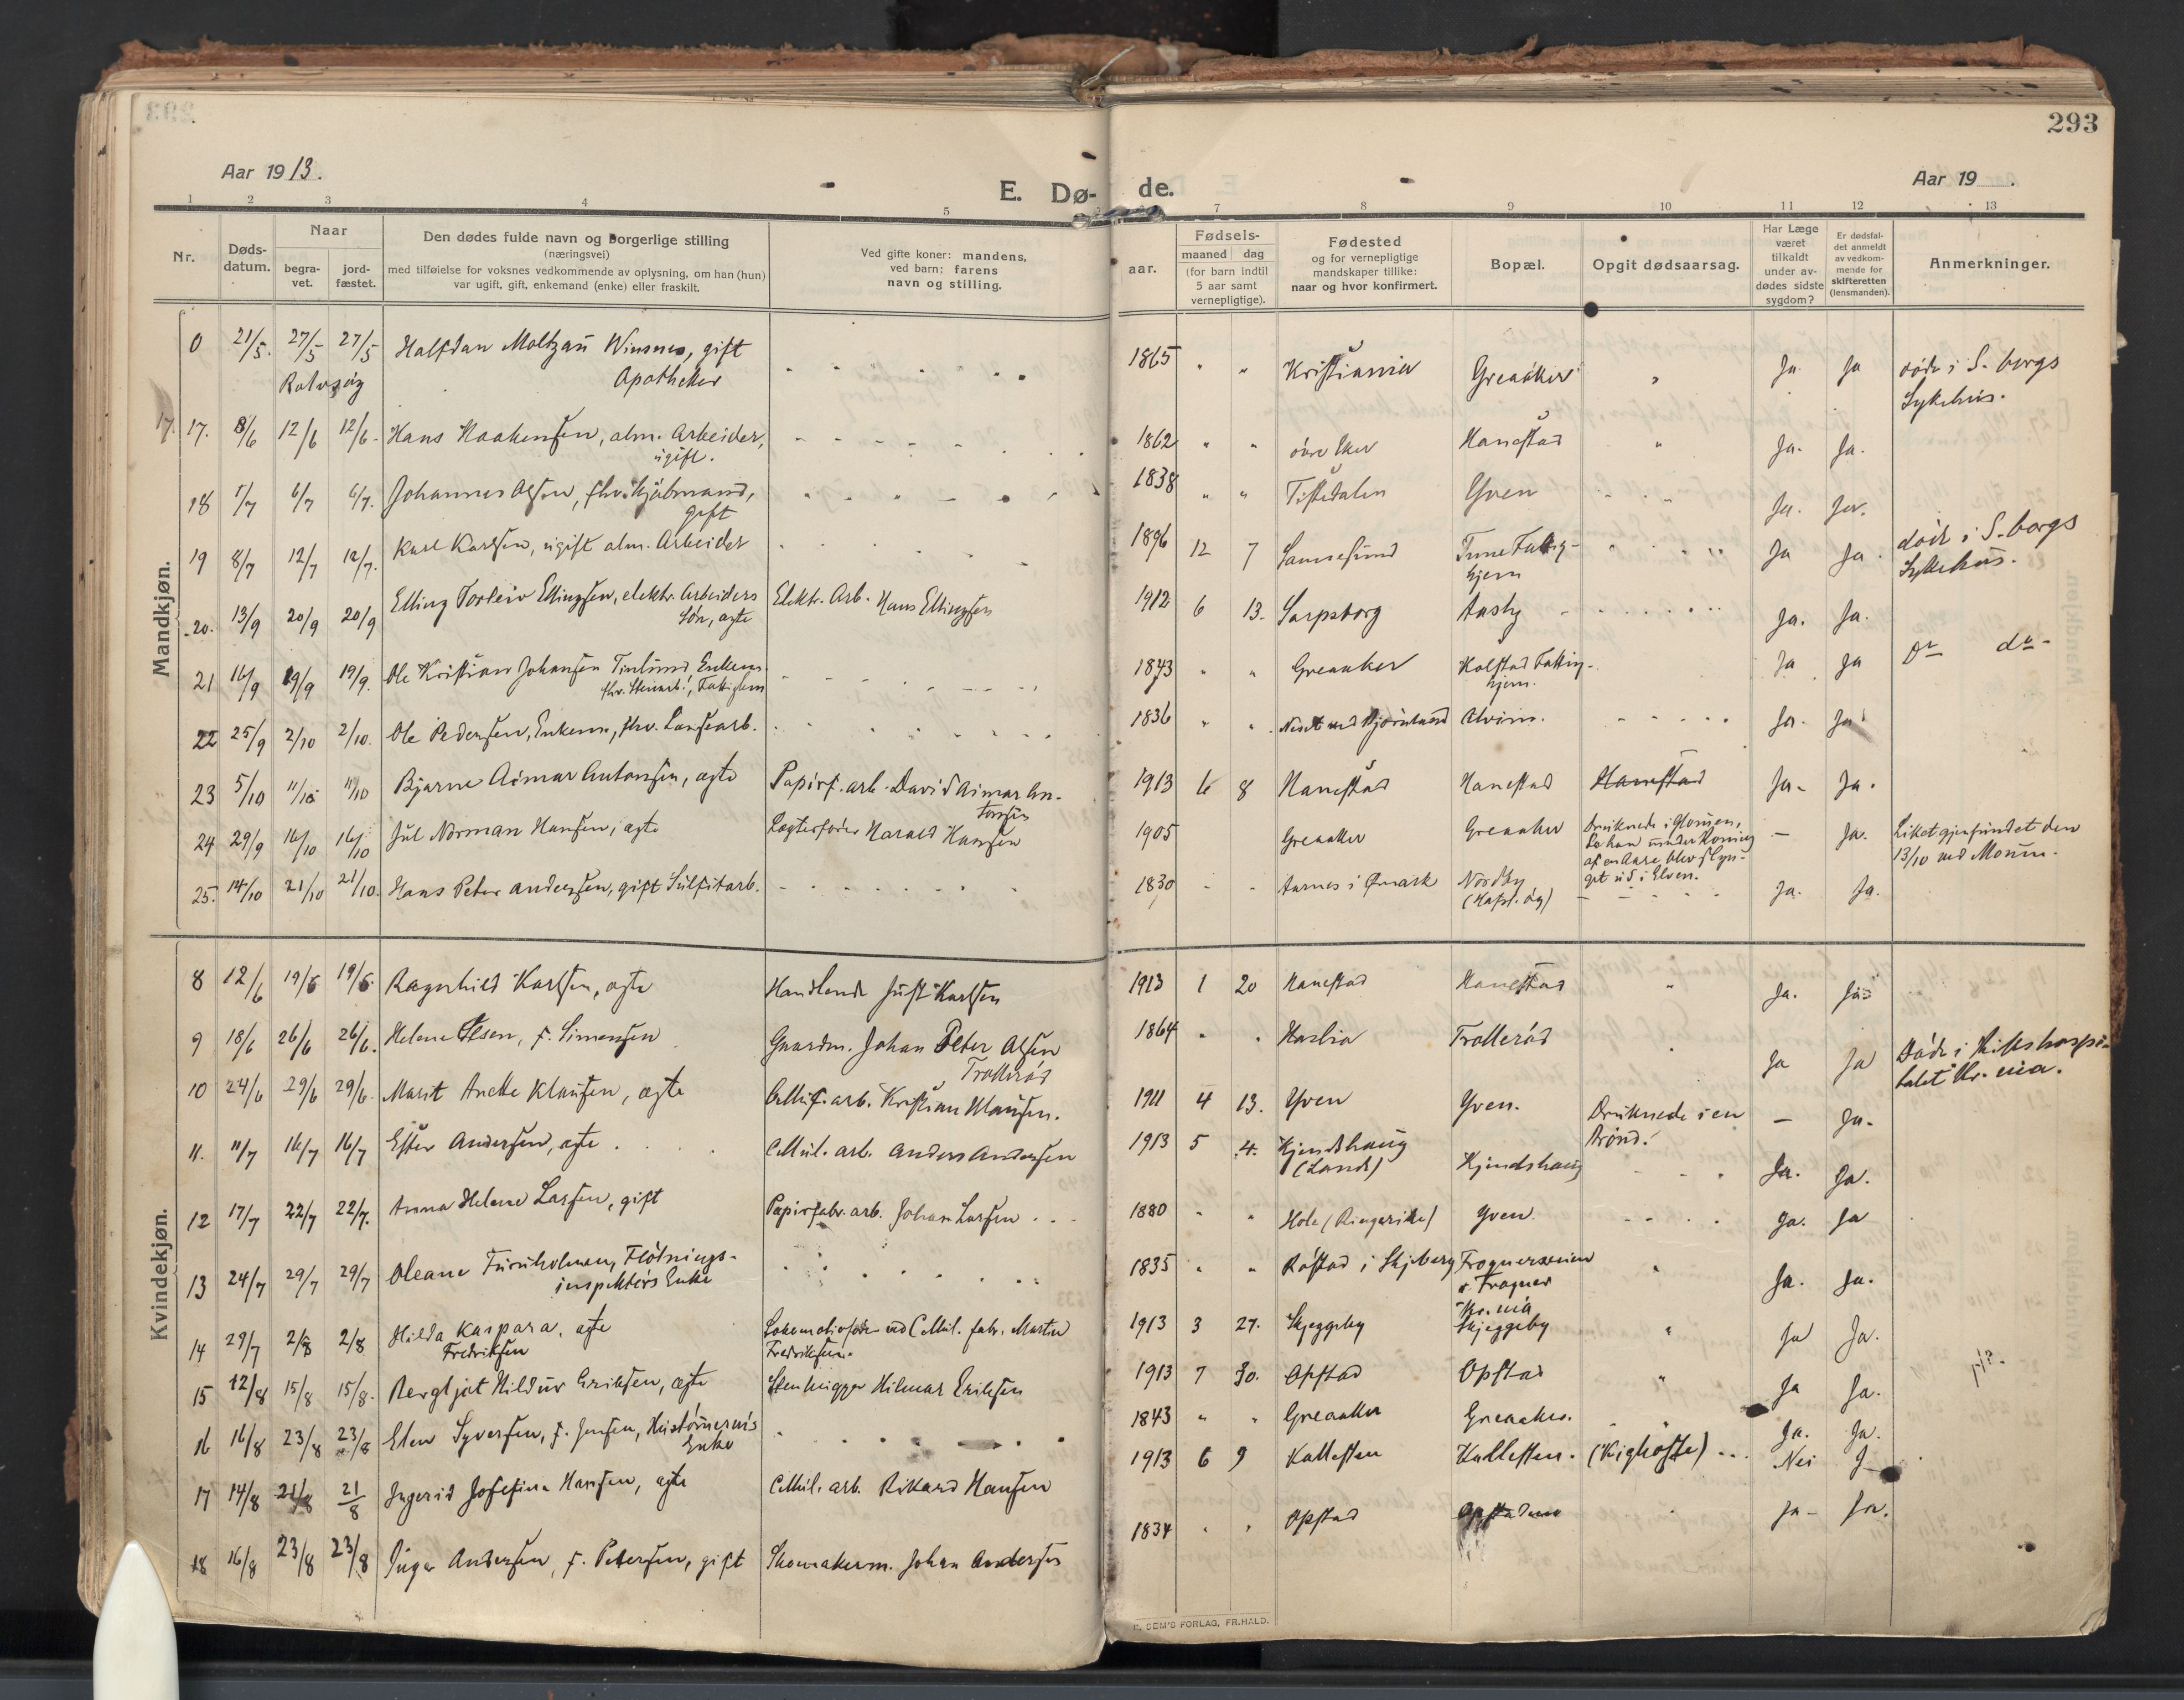 293
Aar 1913.
E. Dø- de.
Aar 19 .
1 2 3 4 5 7 8 9 10 11 12 13
Nr.
Døds-
datum.
Naar
begra-
vet.
jord-
fæstet.
Den dødes fulde navn og borgerlige stilling
(næringsvei)
med tilføielse for voksnes vedkommende av oplysning, om han (hun)
var ugift, gift, enkemand (enke) eller fraskilt.
Ved gifte koner: mandens,
ved barn: farens
navn og stilling.
aar.
Fødsels-
maaned dag
(for barn indtil
5 aar samt
vernepligtige).
Fødested
og for vernepligtige
mandskaper tillike:
naar og hvor konfirmert.
Bopæl.
Opgit dødsaarsag.
Har Læge
været
tilkaldt
under av-
dødes sidste
sygdom?
Er dødsfal-
det anmeldt
av vedkom-
mende for
skifteretten
(lensmanden).
Anmerkninger.
Mandkjøn.
0 21/5. 27/5 27/5 Halfdan Moltzau Winsnes, gift 1865 " " Kristiania Greaaker " Ja Ja døde i S-borgs
Rolvsøy Apotheker Sykehus.
17. 17. 8/6 12/6 12/6. Hans Haakensen, alm. Arbeider, 1862 " " øvre Eker Hanestad " Ja. Ja.
ugift.
18 1/7 6/7 6/7. Johannes Olsen, fhv. , 1838 " " Tistedalen Yven Ja. Ja.
gift
19 8/7 12/7 12/7. Karl Karlsen, ugift alm. Arbeider 1896 12 7 Sannesund Tune Fattig- Ja Ja. døde i S-borgs
hjem Sykehus.
20. 13/9 20/9 20/9 Elling Torleiv Ellingsen, elektr. Arbeiders Elektr. Arb. Hans Ellingsen 1912 6 13. Sarpsborg Aasby Ja. Ja.
søn, ægte
21 16/9 19/9 19/9. Ole Kristian Johansen Tinlund Enkem. 1843 " " Greaaker Kolstad Fattig- Ja Ja Do do-
fhv. Stenarb., Fattiglem hjem.
22 25/9 2/10 2/10. Ole Pedersen, Enkem., fhv. Løsarb. 1836 " " Alvim. Ja. Ja.
23 5/10 11/10 11/10 Bjarne Aimar Antonsen, ægte Papirf. arb. David Aimar An- 1913 6 8 Hanestad Hanestad Hanestad Ja- Ja.
tonsen
24 29/9 16/10 16/10 Jul Norman Hansen, ægte Harald Hansen 1905 Greaaker Greaaker Druknede i Glommen, — Ja. Liket gjenfundet den
da han under Roning 13/10 ved Moum.
af en Aare blev slyn-
get ud i Elven.
25. 14/10 21/10 21/10. Hans Peter Andersen, gift Sulfitarb. 1830 " " Aarnes i Ømark Nordby Ja. Ja.
(Hafsl. øg)
Kvindekjøn.
8 12/6 19/6 19/6. Ragnhild Karlsen, ægte Handlende Just Karlsen 1913 1 20 Hanestad Hanestad " Ja. Ja
9 18/6 26/6 26/6. Helene Olsen, f. Simensen Gaardm. Johan Peter Olsen 1864 " " Haslia Trollerød Ja Ja Døde i Rikshospi-
Trollerød talet Kr.ania.
10 24/6 29/6 29/6. Marit Anette Klausen, ægte Cellulf. arb. Kristian Klausen. 1911 4 13. Yven Yven. Druknede i en — Ja.
Brønd.
11. 11/7 16/7 16/7 Ester Andersen, ægte. Cellul. arb. Anders Andersen 1913 5 4. Kjendshaug Kjendshaug Ja. Ja.
(Lande)
12 17/7 22/7 22/7. Anna Helene Larsen, gift Papirfabr. arb. Johan Larsen 1880 " " Hole (Ringerike) Yven. Ja. Ja
13 24/7 29/7 29/7 Oleane Furuholmen, Fløtnings- 1835 " " Røstad i Skjeberg Frognerveien " Ja. Ja.
inspektørs Enke Frogner
Kr.ania
14 29/7 2/8 2/8 Hilda Kaspara, ægte ved Cellul. fabr. Martin 1913 3 27. Skjeggeby Skjeggeby " Ja Ja.
Fredriksen Fredriksen.
15 12/8 15/8 15/8. Bergljot Hildur Eriksen, ægte Stenhugger Hilmar Eriksen 1913 7 30. Opstad Opstad " Ja Ja.
16 16/8 23/8 23/8 Elen Syversen, f. Jensen, Hustømmermands 1843 " " Greaaker Greaaker. Ja. Ja.
Enke
17 14/8 21/8 21/8 Ingerid Josefine Hansen, ægte Cellul. arb. Rikard Hansen 1913 6 9 Kallesten Kallesten. (Kighoste) Nei J
18 16/8 23/8 23/8 Inga Andersen, f. Petersen, gift Skomakerm. Johan Andersen 1834 " " Opstad Ja- Ja.
FORLAG, FR.HALD.